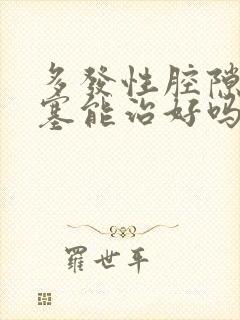 多發性腔隙
塞能治好嗎
羅世平